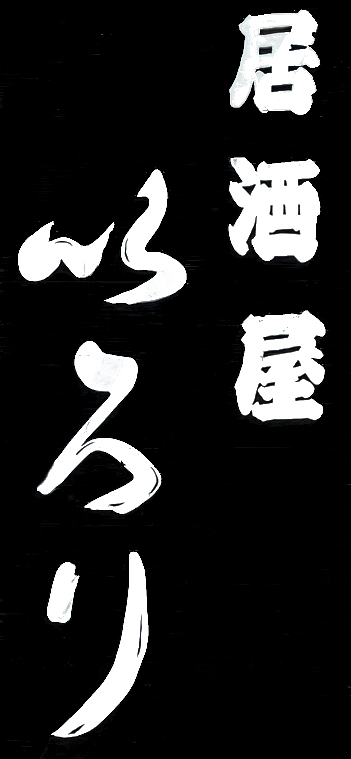 居酒屋
いろり